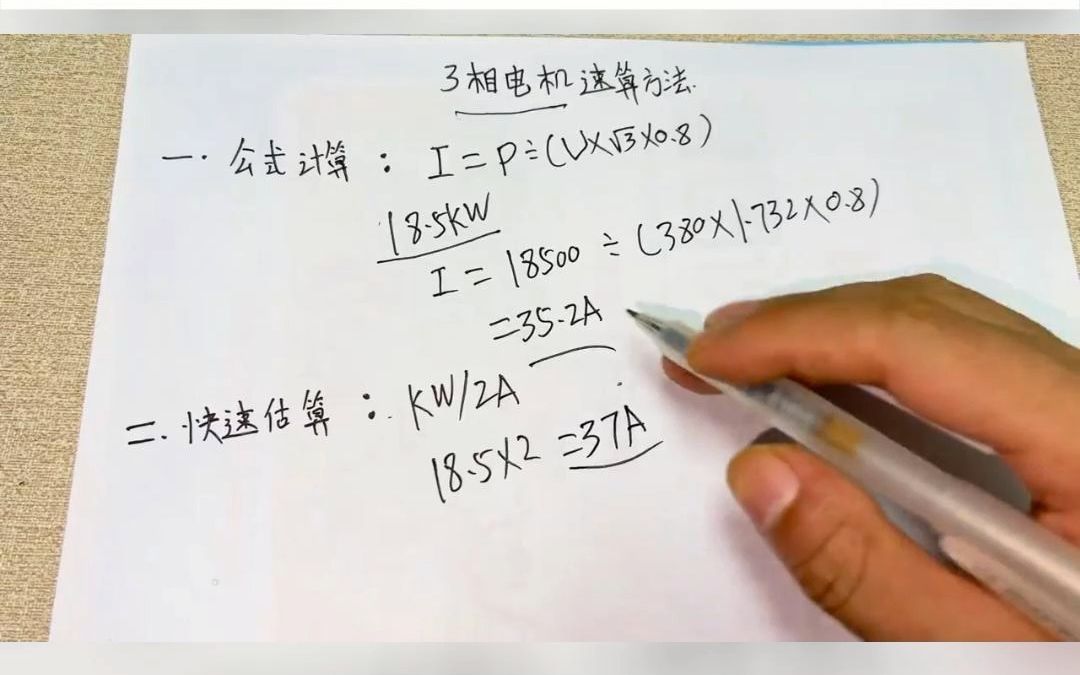 3相电机速算方法.
一.公式计算：I=P÷(U×√3×0.8)
18.5KW
I=18500÷(380×1.732×0.8)
=35.2A
二.快速估算：KW/2A
18.5×2=37A